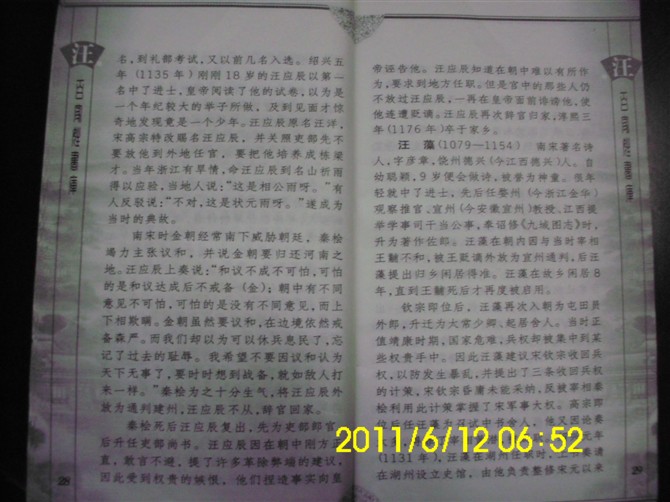 汪
名,到礼部考试,又以前几名入选。绍兴五
年(1135年)刚刚18岁的汪应辰以第一
名中了进士,皇帝阅读了他的试卷,以为是
一个年纪较大的举子所做,及到见面才惊
奇地发现竟是一个少年。汪应辰原名汪洋,
宋高宗特改赐名汪应辰,并关照吏部先不
要放他到外地任官,要把他培养成栋梁
才。当年浙江有旱情,命汪应辰到名山祈雨
得以应验,当地人说:“这是相公雨呀。”有
人反驳说:“不对,这是状元雨呀。”遂成为
当时的典故。
南宋时金朝经常南下威胁朝廷,秦桧
竭力主张议和,并说金朝要归还河南之
地。汪应辰上奏说:“和议不成不可怕,可怕
的是和议达成后不戒备(金);朝中有不同
意见不可怕,可怕的是没有不同意见,而上
下相欺瞒。金朝虽然要议和,在边境依然戒
备森严。而我们却以为可以休兵息民了,忘
记了过去的耻辱。我希望不要因议和认为
天下无事了,要时时想到战备,就如敌人打
来一样。”秦桧为之十分生气,将汪应辰外
放为通判建州,汪应辰不从,辞官回家。
秦桧死后汪应辰复出,先为吏部郎官,
后升任吏部尚书。汪应辰因在朝中刚方正
直,敢言不避,提了许多革除弊端的建议,
因此受到权贵的嫉恨,他们捏造事实向皇
28
汪
帝诬告他。汪应辰知道在朝中难以有所作
为,要求到地方任职。但是宫中的那些人仍
不放过汪应辰,一再在皇帝面前诽谤他,使
他连遭贬谪。汪应辰再次辞官归家,淳熙三
年(1176年)卒于家乡。
汪 藻(1079—1154) 南宋著名诗
人,字彦章,饶州德兴(今江西德兴)人。自
幼聪颖,9岁便会做诗,被誉为神童。很年
轻就中了进士,先后任婺州(今浙江金华)
观察推官、宣州(今安徽宣州)教授、江西提
举学事司干当公事,奉诏修《九域图志》时,
升为著作佐郎。汪藻在朝内因与当时宰相
王黼不和,被王贬谪外放为宣州通判,后汪
藻提出归乡闲居得准。汪藻在故乡闲居8
年,直到王黼死后才再度被启用。
钦宗即位后,汪藻再次入朝为屯田员
外郎,升迁为太常少卿、起居舍人。当时正
值靖康时期,国家危难,兵权却被集中到某
些权贵手中。因此汪藻建议宋钦宗收回兵
权,以防发生暴乱,并提出了三条收回兵权
的计策,宋钦宗昏庸未能采纳,反被宰相秦
桧利用此计策掌握了宋军事大权。高宗即
(1131年),汪藻在湖州任职时,
在湖州设立史馆,由他负责整修宋元以来
29
2011/6/12 06:52